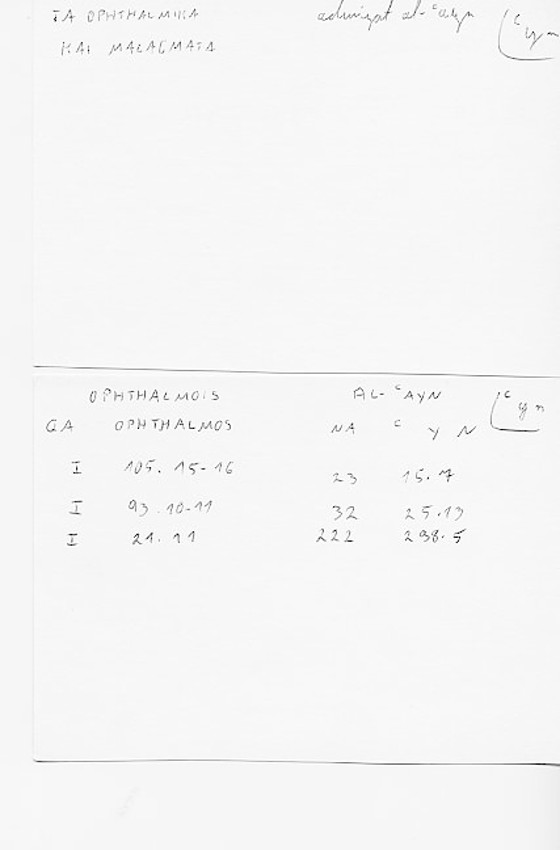 TA OPHTHALMIKA adwiyat al-ʿayn ʿyn
KAI MALAGMATA
OPHTHALMOIS AL-ʿAYN ʿyn
GA OPHTHALMOS NA ʿ Y N
I 105. 15-16 23 15.7
I 93.10-11 32 25.13
I 21.11 222 238.5